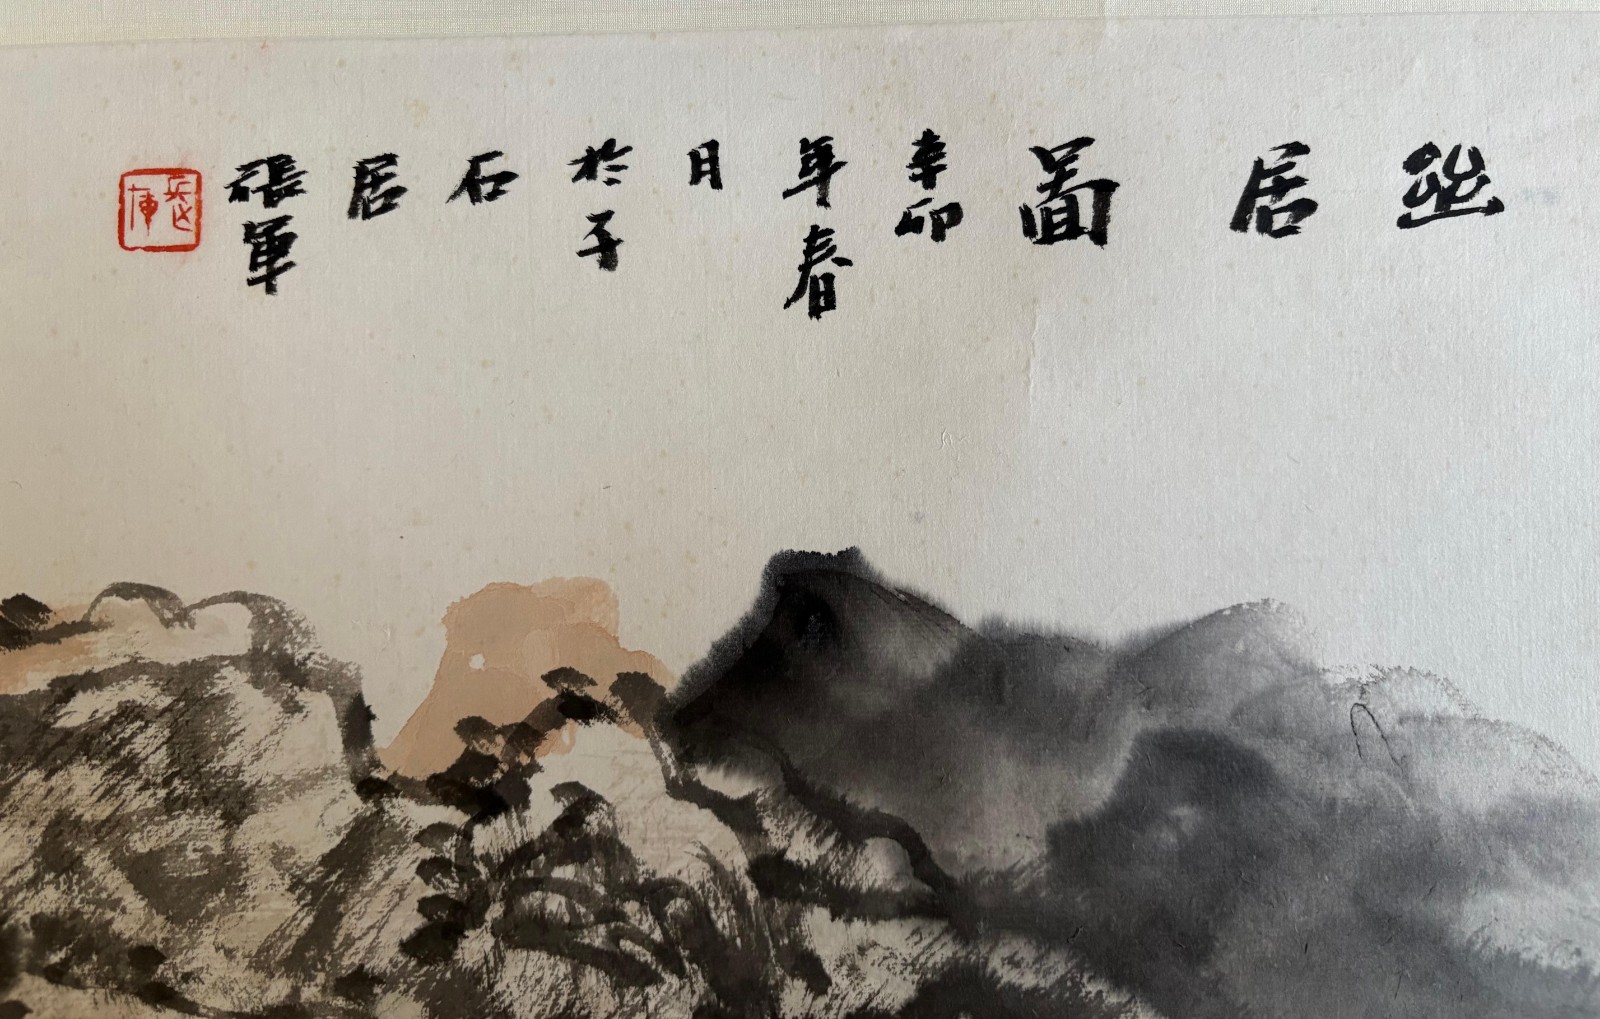 幽
居
圖
辛卯
年春
月
於子
石
居
張軍
張軍